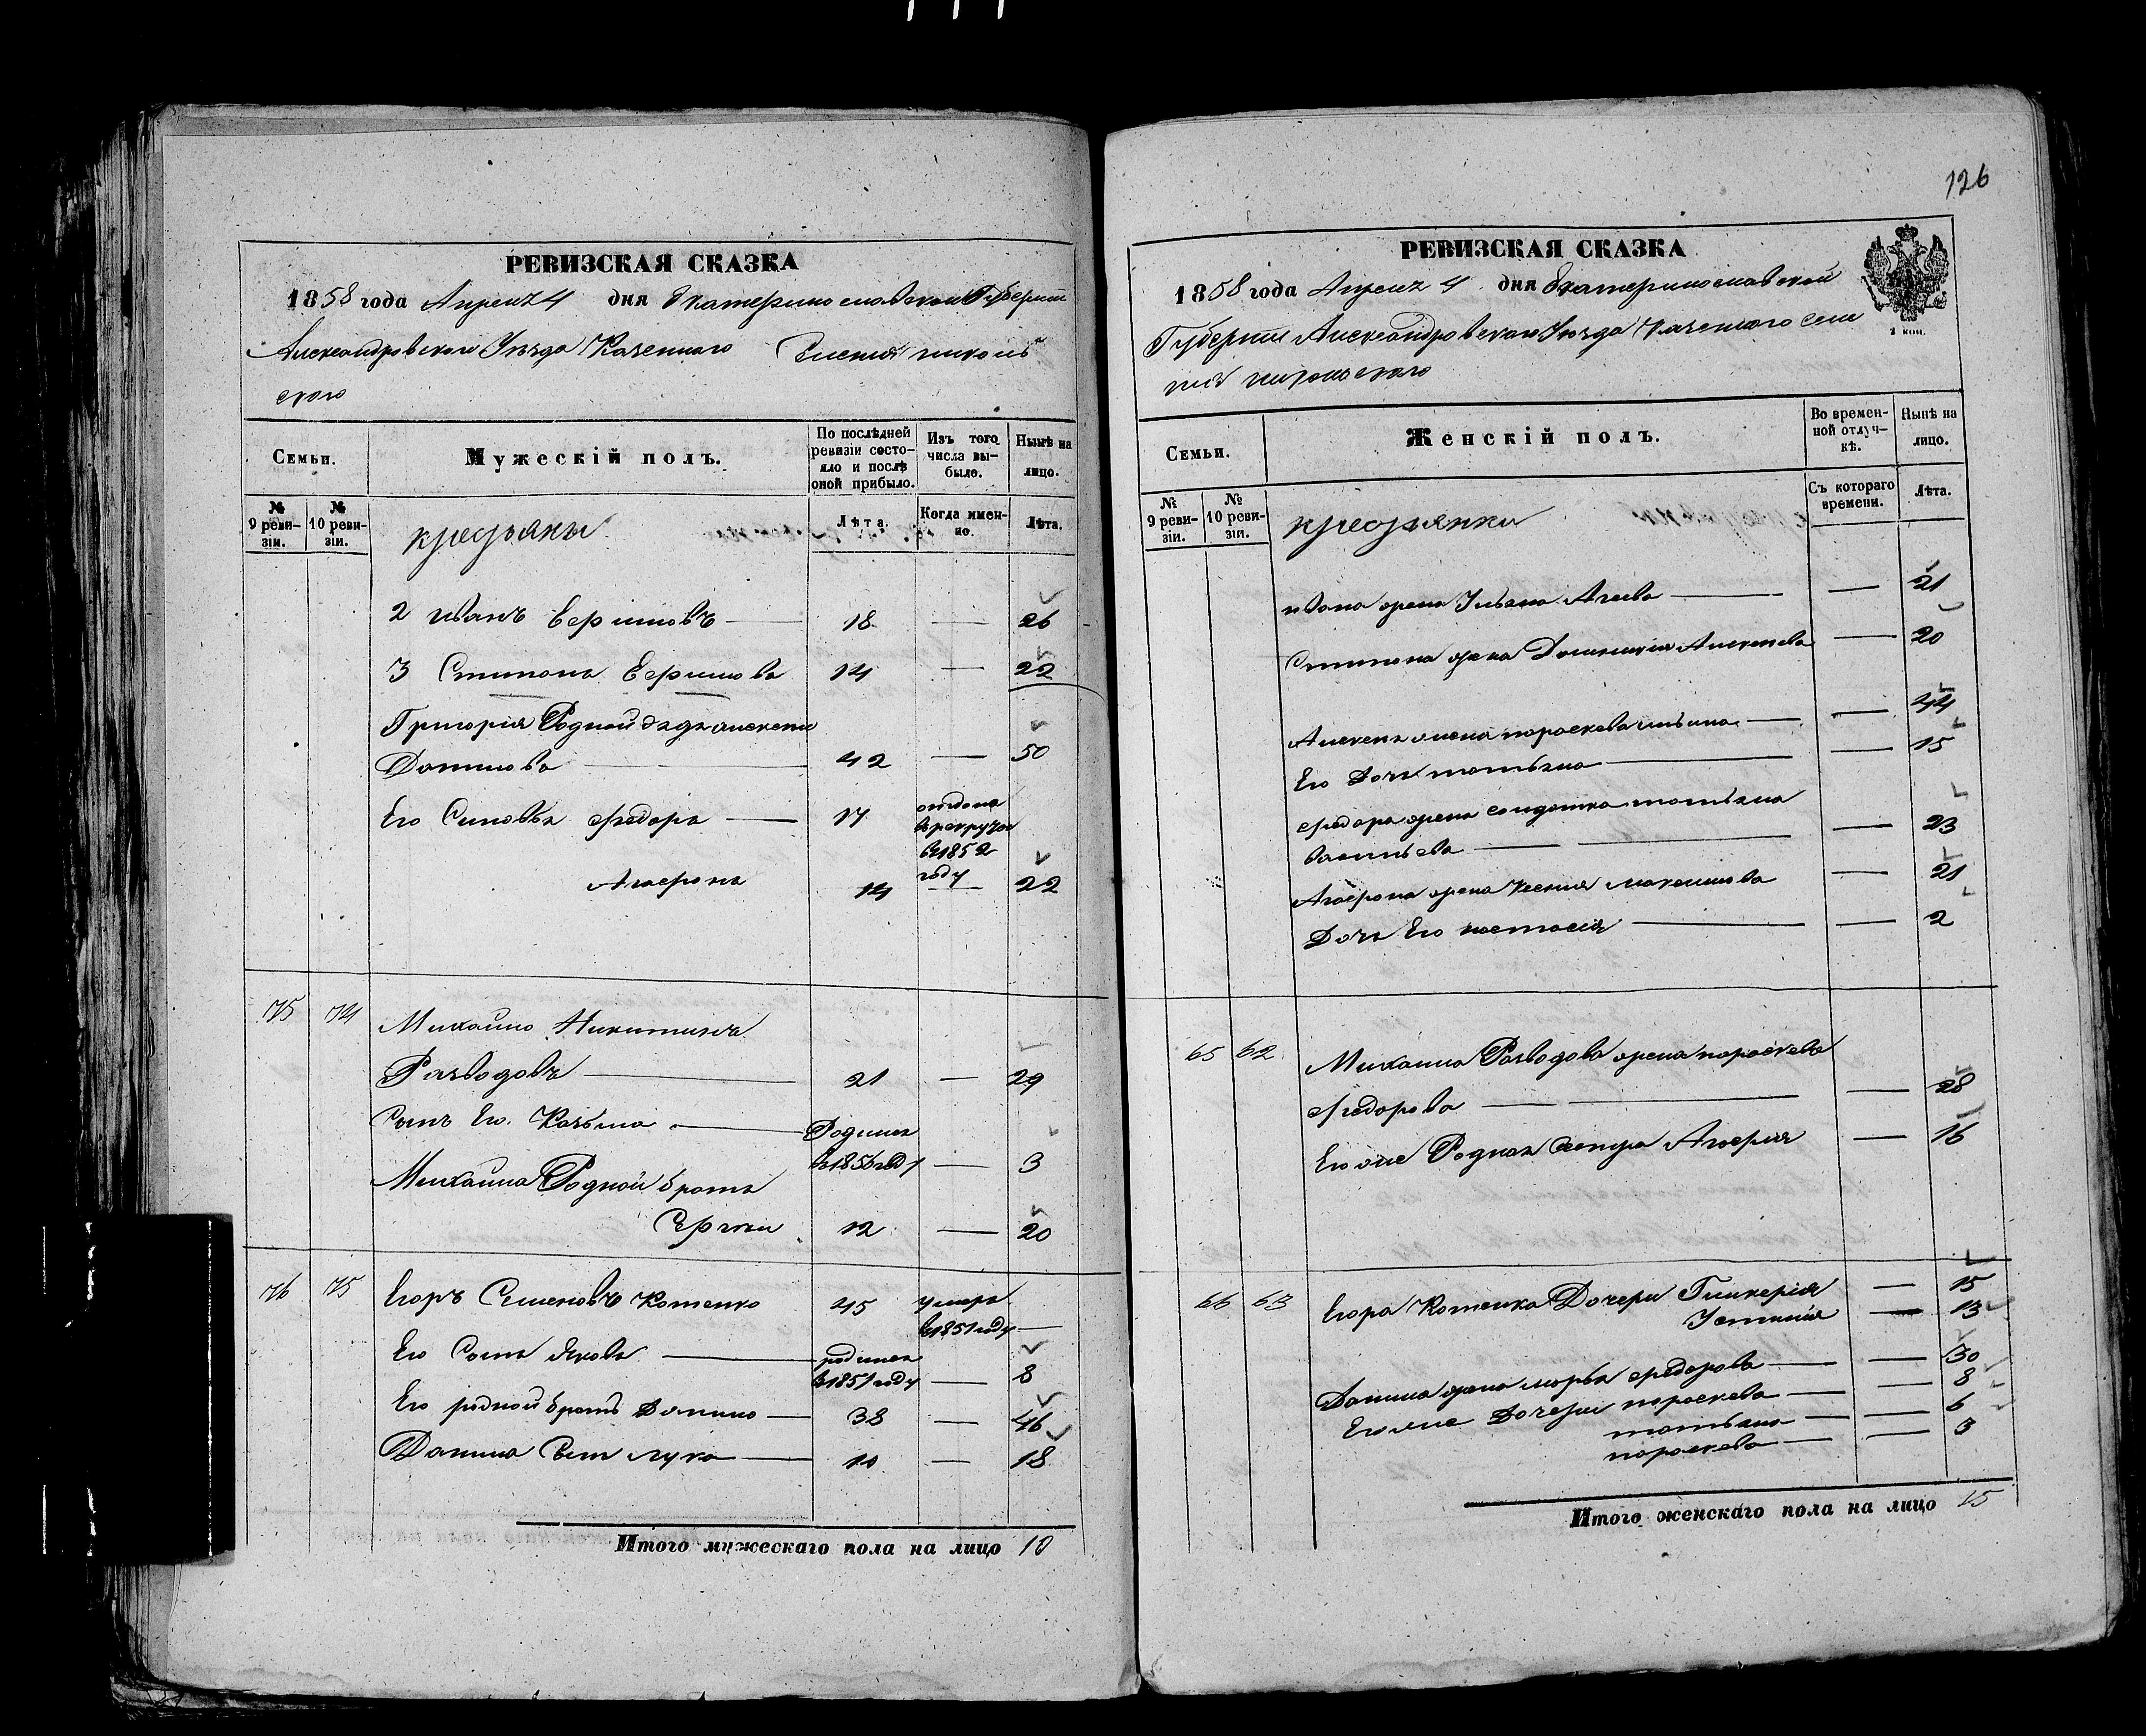 РЕВИЗСКАЯ СКАЗКА
1858 года Апреля 4 дня Екатеринославской Губернии
Александровскаго Уезда Казеннаго Селения николь
скаго
Семьи.
Мужескій полъ.
По послѣдней ревизіи состояло и послѣ оной прибыло.
Изъ того числа выбыло.
Нынѣ на лицо.
№ 9 ревизіи.
№ 10 ревизіи.
крестьяны
Лѣта.
Когда именно.
Лѣта.
2 иванъ Ефимовъ — 18 — 26
3 Степонъ Ефимовъ 14 — 22
Григорія Родной дядя алексей
Даниловъ — 42 — 50
Его Сиповья Федоръ — 17 отдонъ
в рекруты
в 1852
году
14 — 22
75 74 Михайло Никитинъ
— 21 — 29
Сынъ Его Козьма — Родился
в 1856 году — 3
Михайла Родной братъ
Сергей 12 — 20
76 75 Егоръ Семеновъ Котенко 45 умеръ
в 1851 году —
Его Сынъ Яковъ — родился
в 1851 году — 8
Его родной братъ Данило — 38 — 46
Данила Сын лука — 10 — 18
Итого мужескаго пола на лицо 10
126
РЕВИЗСКАЯ СКАЗКА
1858 года Апреля 4 дня Екатеринославской
Губернии Александровскаго Уезда Казеннаго селе
ния никольскаго
2 коп.
Семьи.
Женскій полъ.
Во временной отлучкѣ.
Нынѣ на лицо.
№ 9 ревизіи.
№ 10 ревизіи.
крестьянки
Съ котораго времени.
Лѣта.
ивана жена Ульана — — 21
Степона жена — 20
Алексея жена пороскева ильина — — 44
Его Дочь татьяна — — 15
Федора жена солдатка татьяна
васильева — — — 23
жена Ксения максимова — 21
Дочь Его настасія — — 2
65 62 Михаила жена пороскева
Федорова — — — 28
Его же Родная Сестра — 16
66 63 Егора Котенка Дочери Гликерія — 15
Устинія — 13
Данила жена марья Федорова — — 30
Его же Дочери пороскева — — 8
татьяна — — 6
пороскева — — 3
Итого женскаго пола на лицо 15